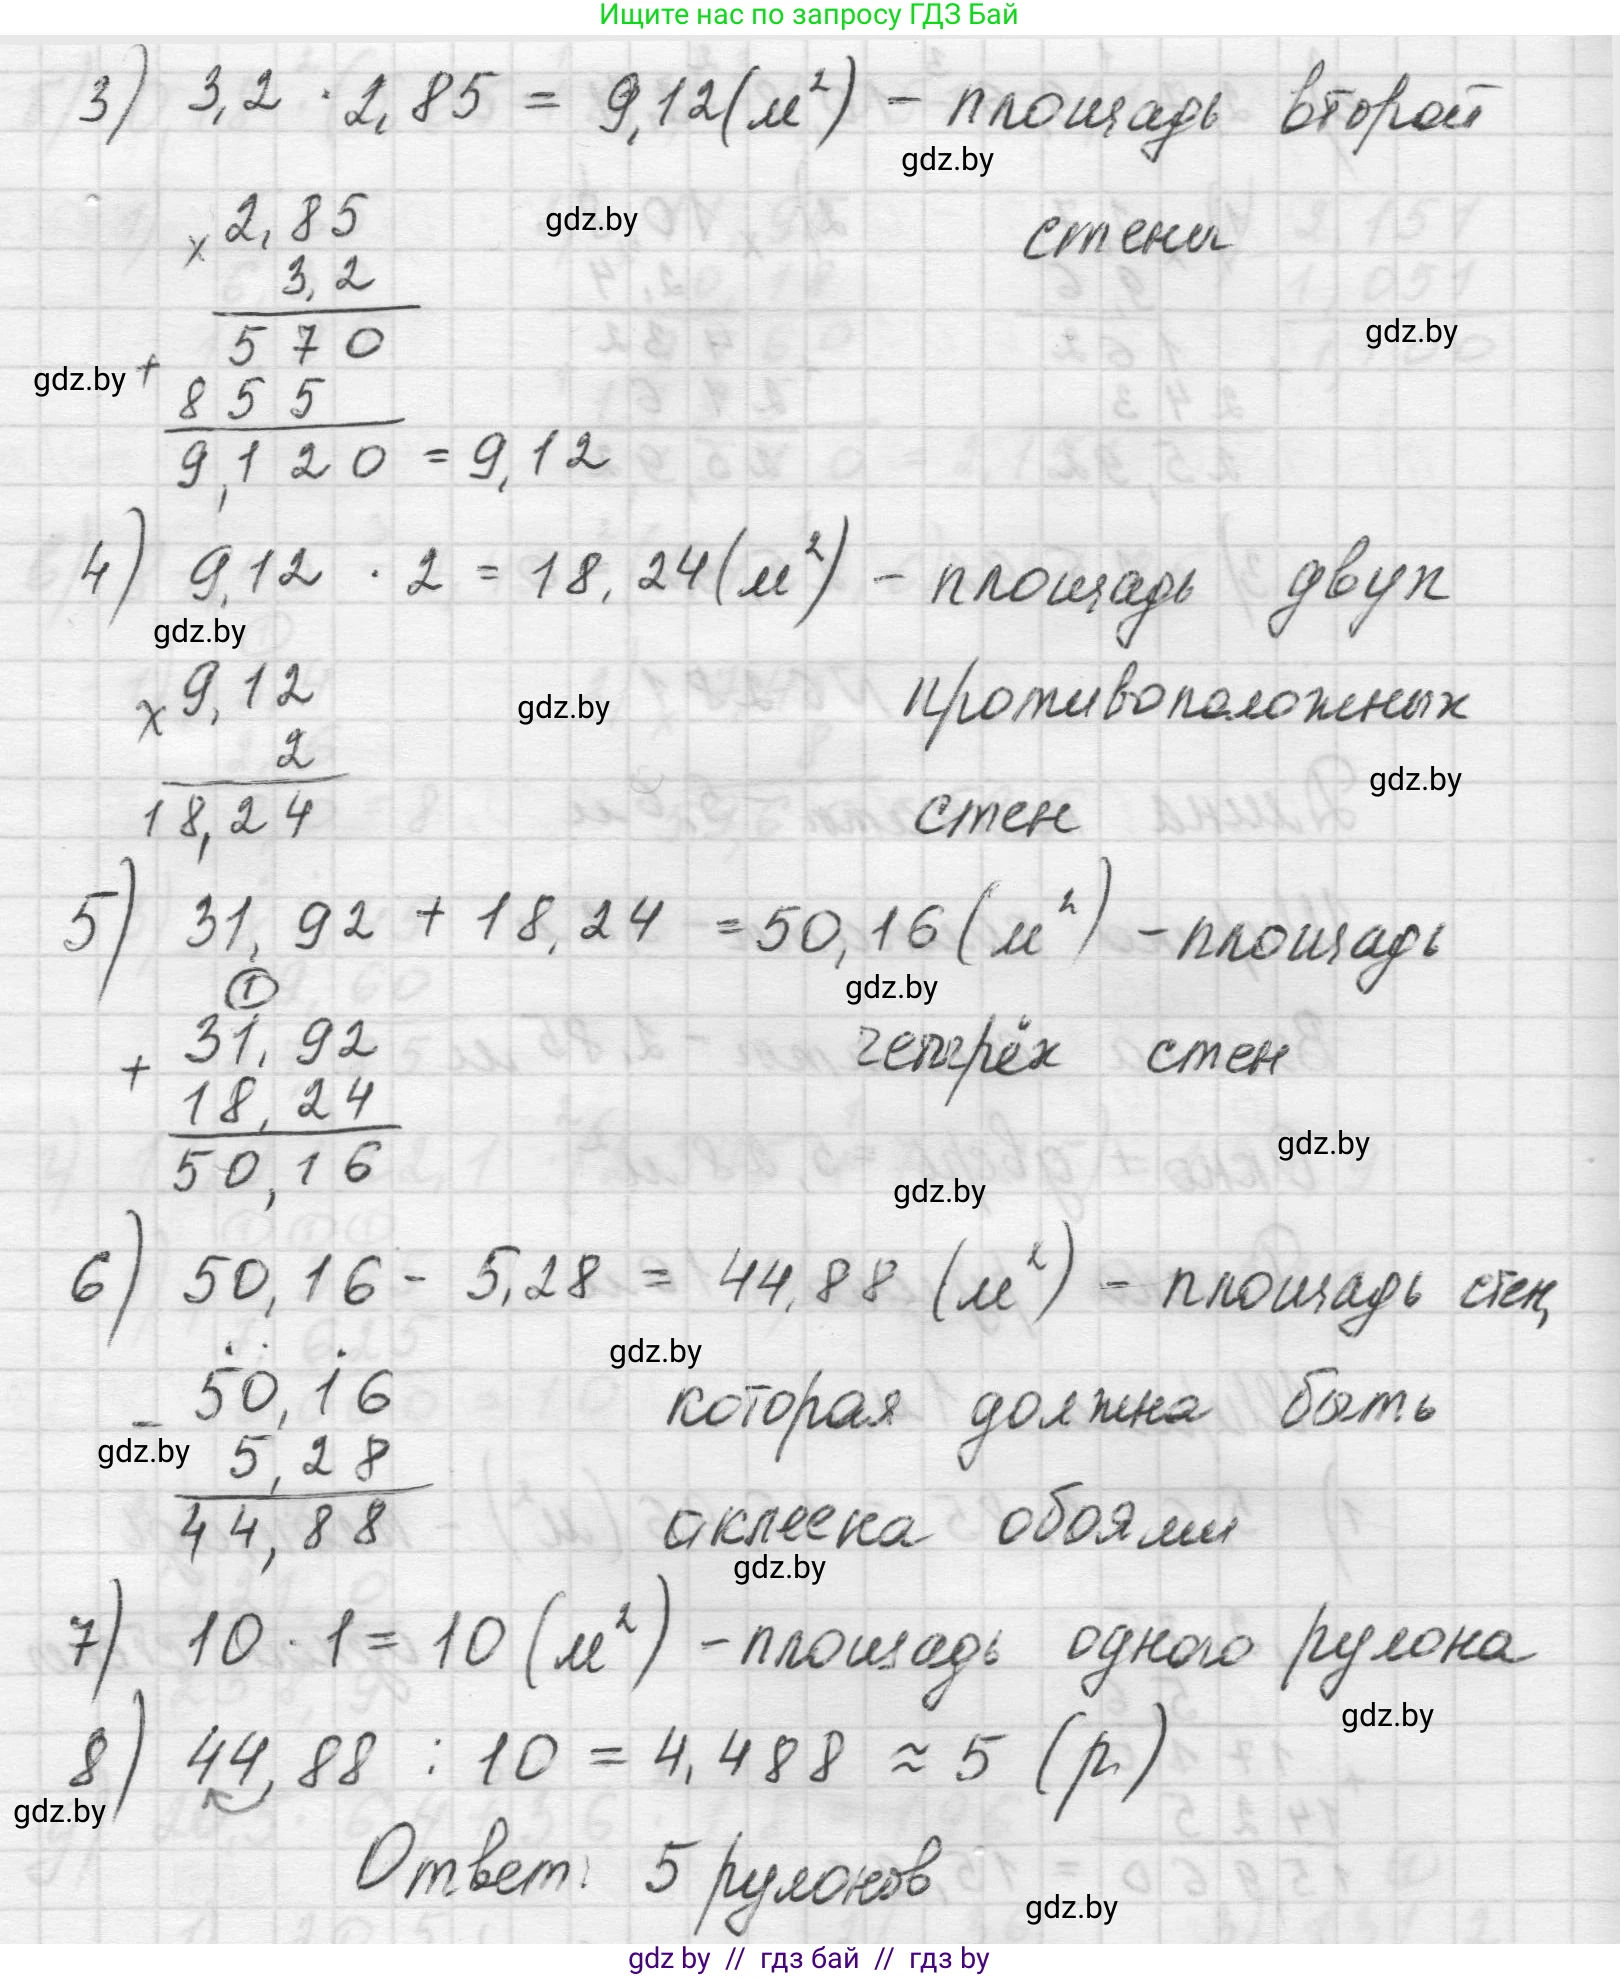 Ищите нас по запросу ГДЗ Бай
3) 3,2 · 2,85 = 9,12 (м²) - площадь второй
gdz.by
× 2,85 gdz.by стены
3,2
gdz.by
570
gdz.by +
855
9,120 = 9,12
4) 9,12 · 2 = 18,24 (м²) - площадь двух
gdz.by
× 9,12 gdz.by противоположных
2
gdz.by
18,24 стен
5) 31,92 + 18,24 = 50,16 (м²) - площадь
1 gdz.by
+ 31,92 четырёх стен
18,24
gdz.by
50,16 gdz.by
6) 50,16 - 5,28 = 44,88 (м²) - площадь стен,
gdz.by
- 50,16 которая должна быть
gdz.by 5,28
44,88 оклеена обоями
gdz.by
7) 10 · 1 = 10 (м²) - площадь одного рулона
gdz.by
8) 44,88 : 10 = 4,488 ≈ 5 (р.)
gdz.by
Ответ: 5 рулонов
gdz.by
gdz by // гдз бай // гдз by